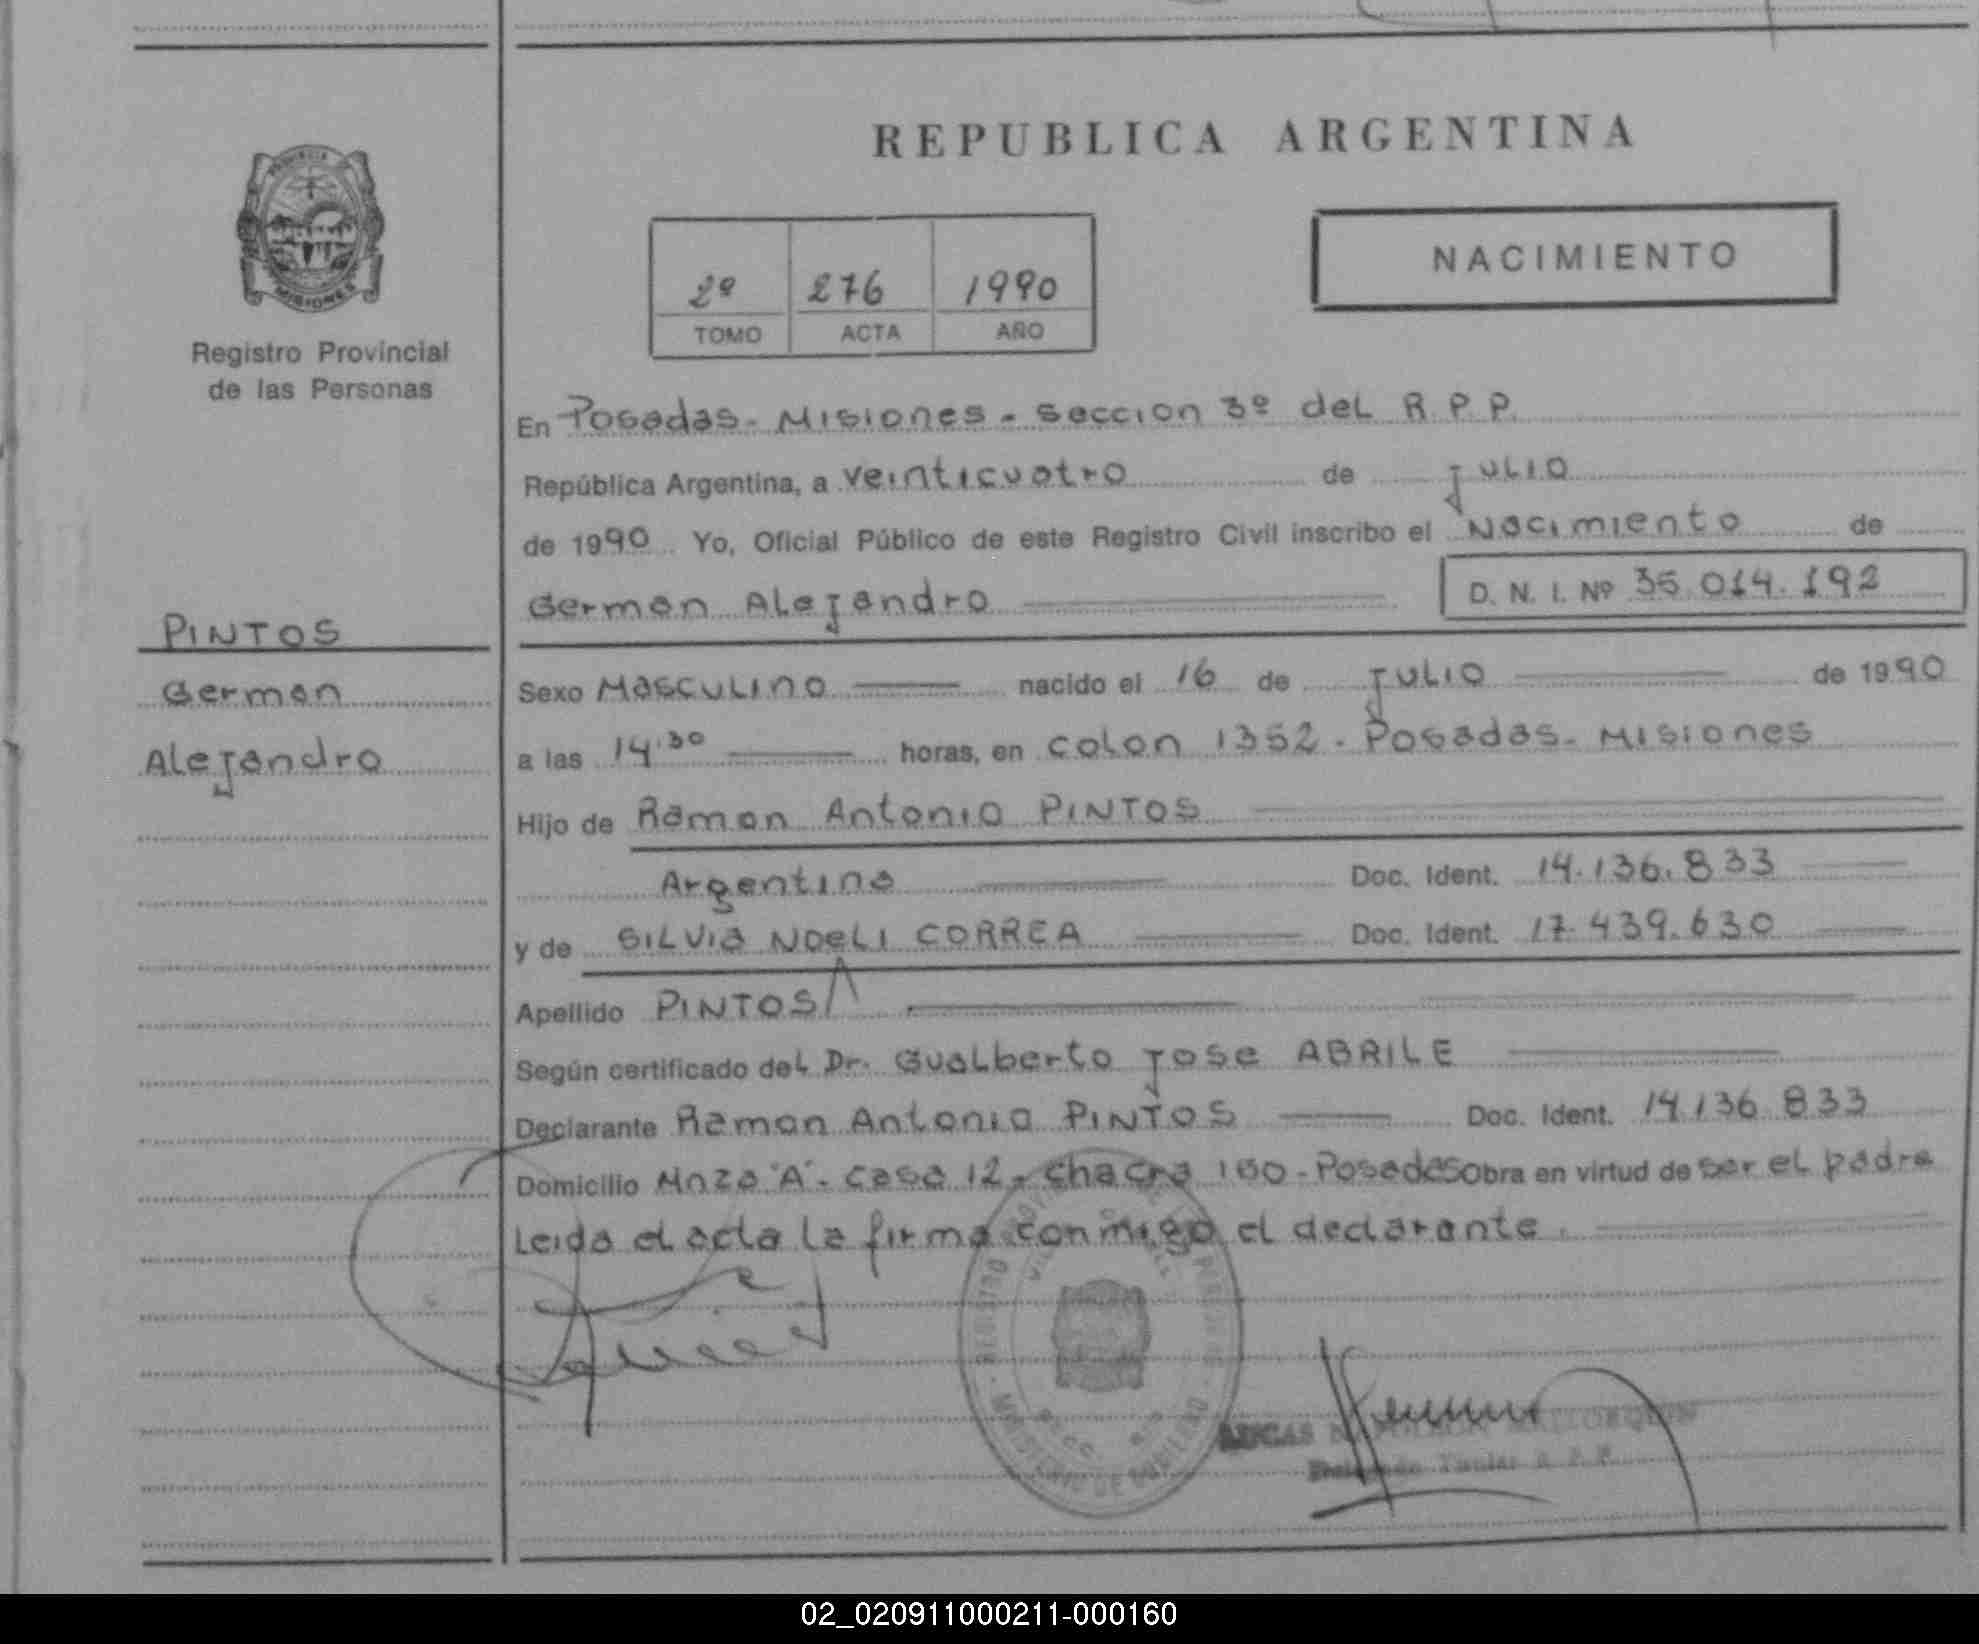 PROVINCIA
MISIONES
Registro Provincial
de las Personas
REPUBLICA ARGENTINA
2º 276 1990
TOMO ACTA AÑO
NACIMIENTO
En Posadas - Misiones - seccion 3º del R.P.P.
República Argentina, a veinticuatro de julio
de 1990 Yo, Oficial Público de este Registro Civil inscribo el Nacimiento de
German Alejandro D. N. I. Nº 35.014.192
PINTOS
German
Alejandro
Sexo Masculino nacido el 16 de julio de 1990
a las 14:30 horas, en colon 1352 - Posadas - Misiones
Hijo de Ramon Antonio PINTOS
Argentina Doc. Ident. 14.136.833
y de SILVIA NOELI CORREA Doc. Ident. 17.439.630
Apellido PINTOS
Según certificado del Dr. Gualberto Jose ABRILE
Declarante Ramon Antonio PINTOS Doc. Ident. 14.136.833
Domicilio Mnza "A" - casa 12 - chacra 150 - Posadas Obra en virtud de ser el padre
Leida el acta la firma conmigo el declarante.
REGISTRO
MINISTERIO DE GOBIERNO
LUCAS NAPOLEON
Titular R. P. P.
02_020911000211-000160